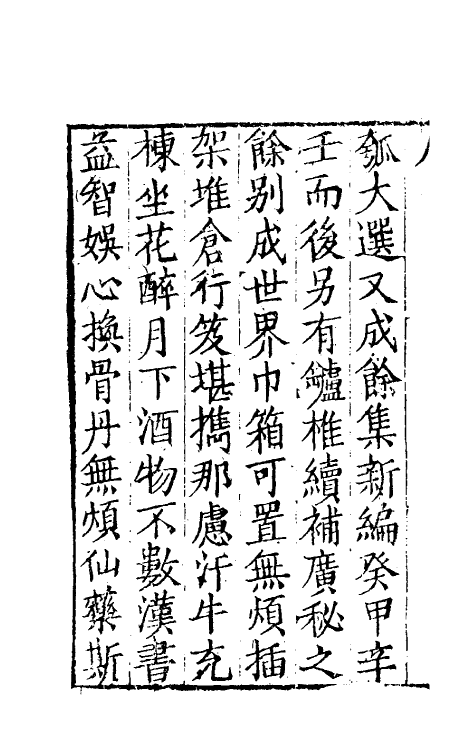 觚大選又成餘集新編癸甲辛
壬而後另有鑪椎續補廣秘之
餘别成世界巾箱可置無煩插
架堆倉行笈堪携那慮汗牛充
棟坐花醉月下酒物不數漢書
益智娛心換骨丹無煩仙藥斯